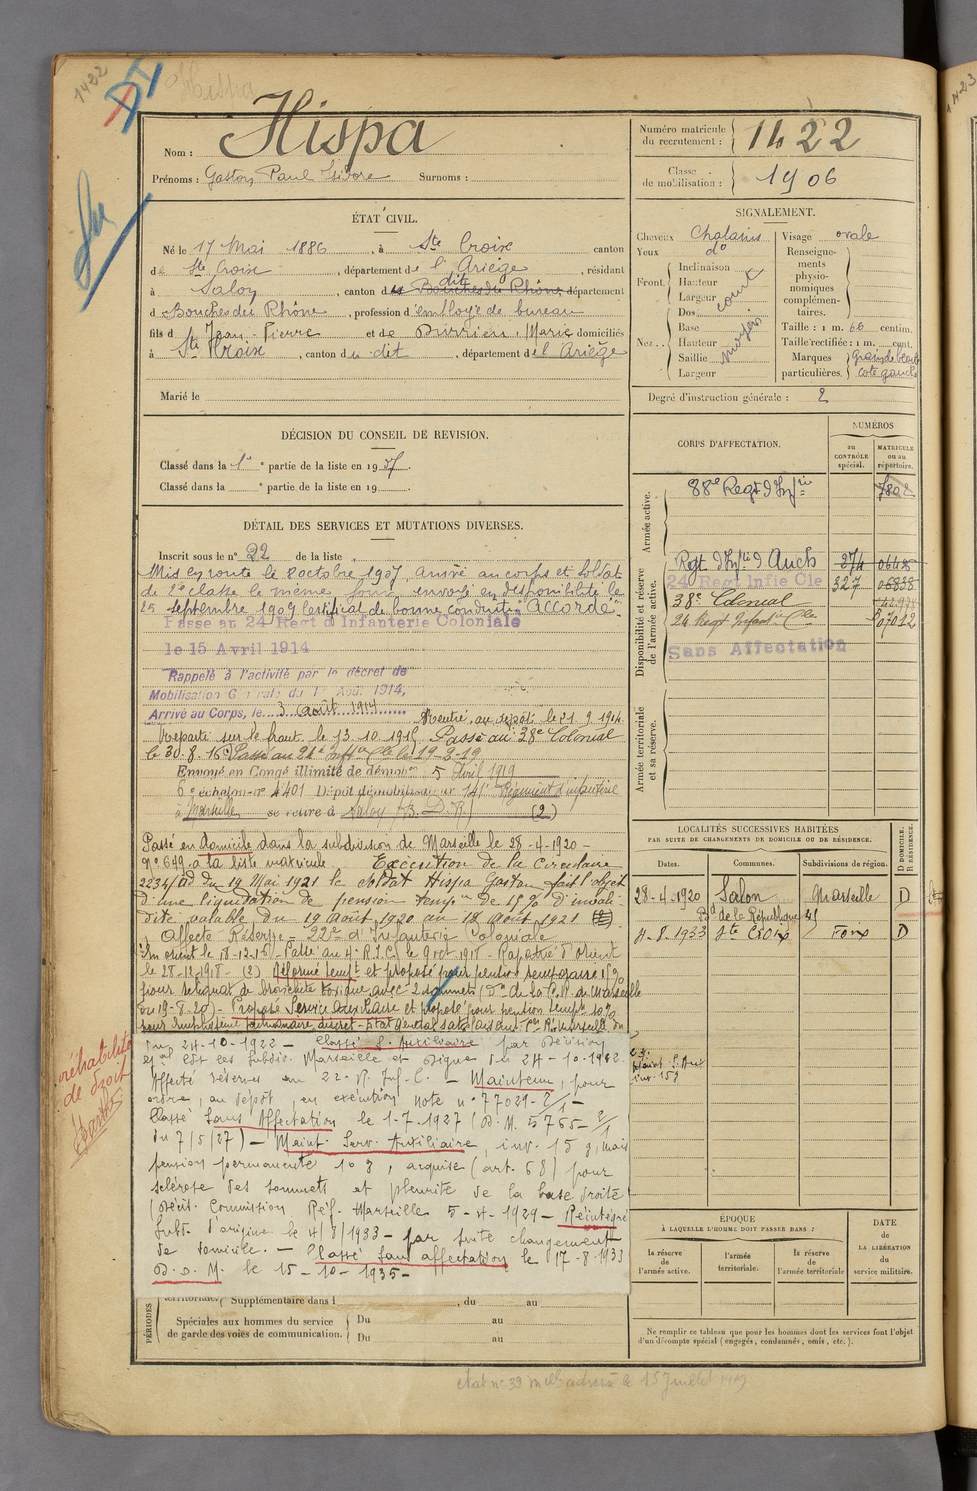 1422
Hispa
Nom : Hispa
Prénoms : Gaston Paul Isidore Surnoms :
ÉTAT CIVIL.
Né le 17 Mai 1886, à Ste Croix canton
de Ste Croix, département de l'Ariège, résidant
à Salon, canton du dit Bouches du Rhône département
d Bouches du Rhône, profession d'employé de bureau
fils d Jean-Pierre et de Durrieu, Marie domiciliés
à Ste Croix, canton du dit, département de l'Ariège
Marié le
DÉCISION DU CONSEIL DE REVISION.
Classé dans la 1re partie de la liste en 1907.
Classé dans la e partie de la liste en 19 .
DÉTAIL DES SERVICES ET MUTATIONS DIVERSES.
Inscrit sous le n° 22 de la liste
Mis en route le 8 octobre 1907, arrivé au corps et soldat
de 2e classe le même jour, envoyé en disponibilité le
25 septembre 1909 Certificat de bonne conduite "Accordé".
Passé au 24 Regt d'Infanterie Coloniale
le 15 Avril 1914
Rappelé à l'activité par le décret de
Mobilisation Générale du 1er Août 1914,
Arrivé au Corps, le 3 août 1914
Rentré au dépôt le 21.9.1914.
Reparti sur le front le 13.10.1915 Passé au 38e Colonial
le 30.8.16 Passé au 24e Inftie Cle le 19-3-19
Envoyé en Congé illimité de démobon 5 Avril 1919
6e échelon-n° 4401 Dépôt démobilisateur 141e Régiment d'infanterie
à Marseille se retire à Salon (B. D. R) (2)
Passé en domicile dans la subdivision de Marseille le 28-4-1920-
n° 649 à la liste matricule. Exécution de la Circulaire
2234/ad du 19 Mai 1921 le soldat Hispa Gaston fait l'objet
d'une liquidation de pension tempre de 15% d'invali-
dité valable du 19 août 1920 au 18 août 1921
Affecté Réserve - 22e d'Infanterie Coloniale
En orient le 18-12-16 - Passé au 4e R.I.C. le 9 oct. 1918 - Rapatrié d'Orient
le 28-12-1918 - (2) Réformé tempt et proposé pour pension temporaire 15%
pour reliquat de bronchite toxique avec 2 sommets (Dn de la C.R. de Marseille
du 19-8-20) - Proposé Service Auxiliaire et proposé pour pension tempre 10%
du 24-10-1922 - Classé S. Auxiliaire par Décision
Gal Cdt les Subdiv. Marseille et Digne du 24-10-1922.
Affecté réserves au 22e R. Inf. C. - Maintenu, pour
ordre, au dépôt, en exécution note n° 77029-2/1-
Classé Sans Affectation le 1-7-1927 (D.M. 5765-2/1
du 7/5/27) - Maint. Serv. Auxiliaire, inv. 15%, mais
pension permanente 10%, acquise (art. 68) pour
sclérose des sommets et pleurite de la base droite
(Décis. Commission Réf. Marseille 5-4-1929 - Réintégré
Subd. d'origine le 4/8/1933 - par suite changement
de domicile. - Classé sans affectation le 17-8-1933
D.O.M. le 15-10-1935-
réhabilité
de droit
PÉRIODES
territoriale. Supplémentaire dans l , du au
Spéciales aux hommes du service
de garde des voies de communication.
Du au
Du au
Numéro matricule
du recrutement : 1422
Classe
de mobilisation : 1906
SIGNALEMENT.
Cheveux Chatains
Yeux do
Front. Inclinaison
Hauteur
Largeur
court
Nez. Dos
Base
Hauteur
Saillie
Largeur
moyen
Visage ovale
Renseigne-
ments
physio-
nomiques
complémen-
taires.
Taille : 1 m. 60 centim.
Taille rectifiée : 1 m. cent.
Marques particulières. grain de beauté
coté gauche
Degré d'instruction générale : 2
CORPS D'AFFECTATION.
NUMÉROS
au CONTRÔLE spécial.
MATRICULE ou au répertoire.
Armée active.
88e Regt d'Infrie 7802
Disponibilité et réserve de l'armée active.
Regt d'Inftie d'Auch 274
24 Regt Infie Cle 327 05838
38e Colonial
24 Regt Infant Cle 07012
Sans Affectation
Armée territoriale et sa réserve.
LOCALITÉS SUCCESSIVES HABITÉES
PAR SUITE DE CHANGEMENTS DE DOMICILE OU DE RÉSIDENCE.
D DOMICILE. R RÉSIDENCE.
Dates. Communes. Subdivisions de région.
28-4-1920 Salon Marseille D
Bd de la République 45
4-8-1933 Ste Croix Foix D
ÉPOQUE
À LAQUELLE L'HOMME DOIT PASSER DANS :
la réserve de l'armée active.
l'armée territoriale.
la réserve de l'armée territoriale
DATE
de
LA LIBÉRATION
du
service militaire.
Ne remplir ce tableau que pour les hommes dont les services font l'objet
d'un décompte spécial (engagés, condamnés, omis, etc.).